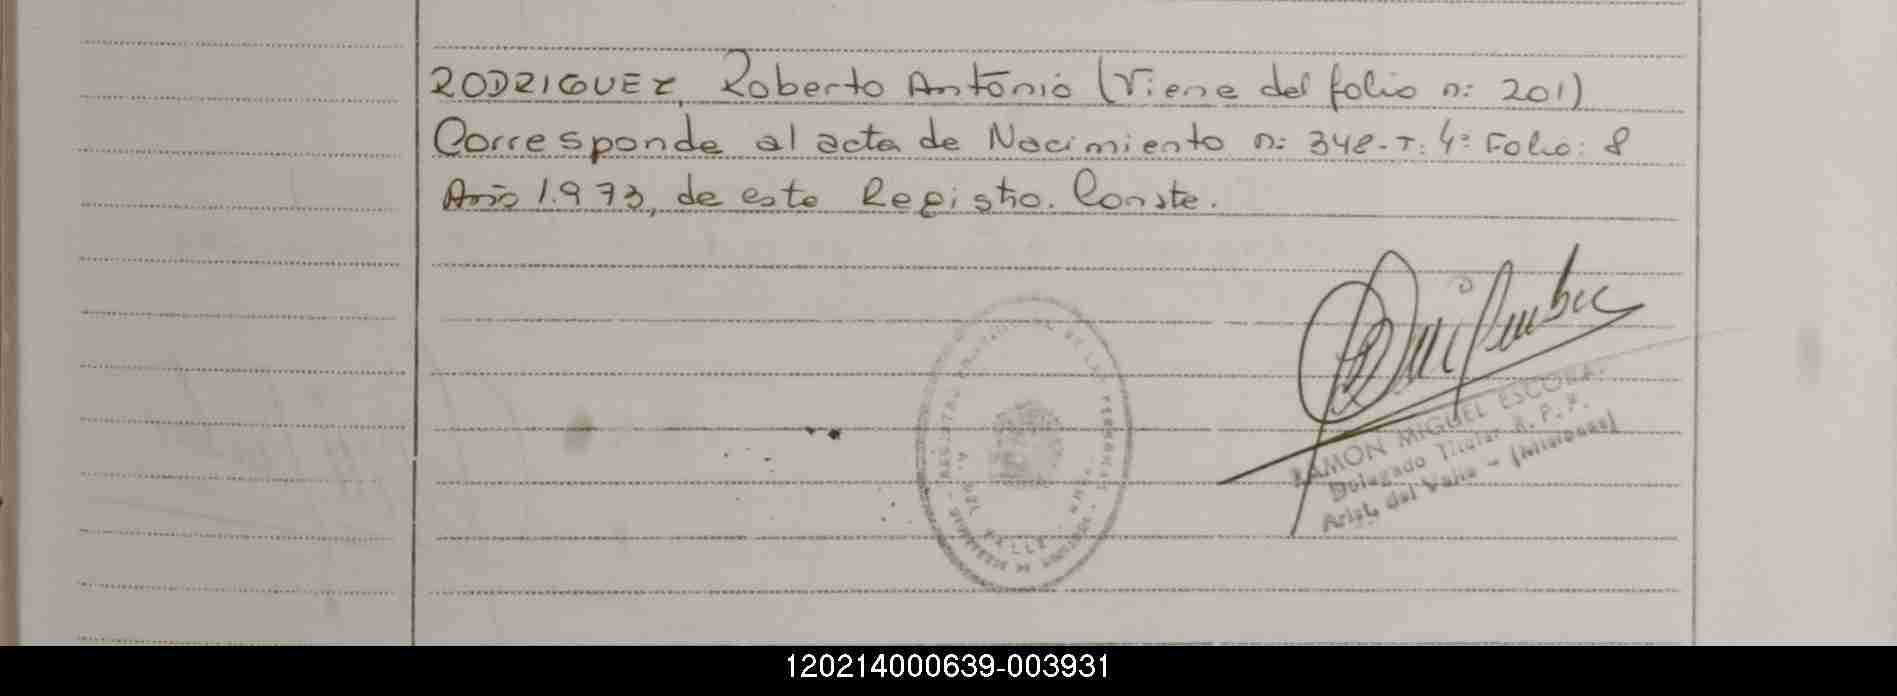 RODRIGUEZ, Roberto Antonio (Viene del folio n: 201)
Corresponde al acta de Nacimiento n: 348-T: 4: Folio: 8
Año 1.973, de este Registro. Conste.
RAMON MIGUEL ESCOBAR
Delegado Titular R. P. P.
Arist. del Valle - (Misiones)
120214000639-003931